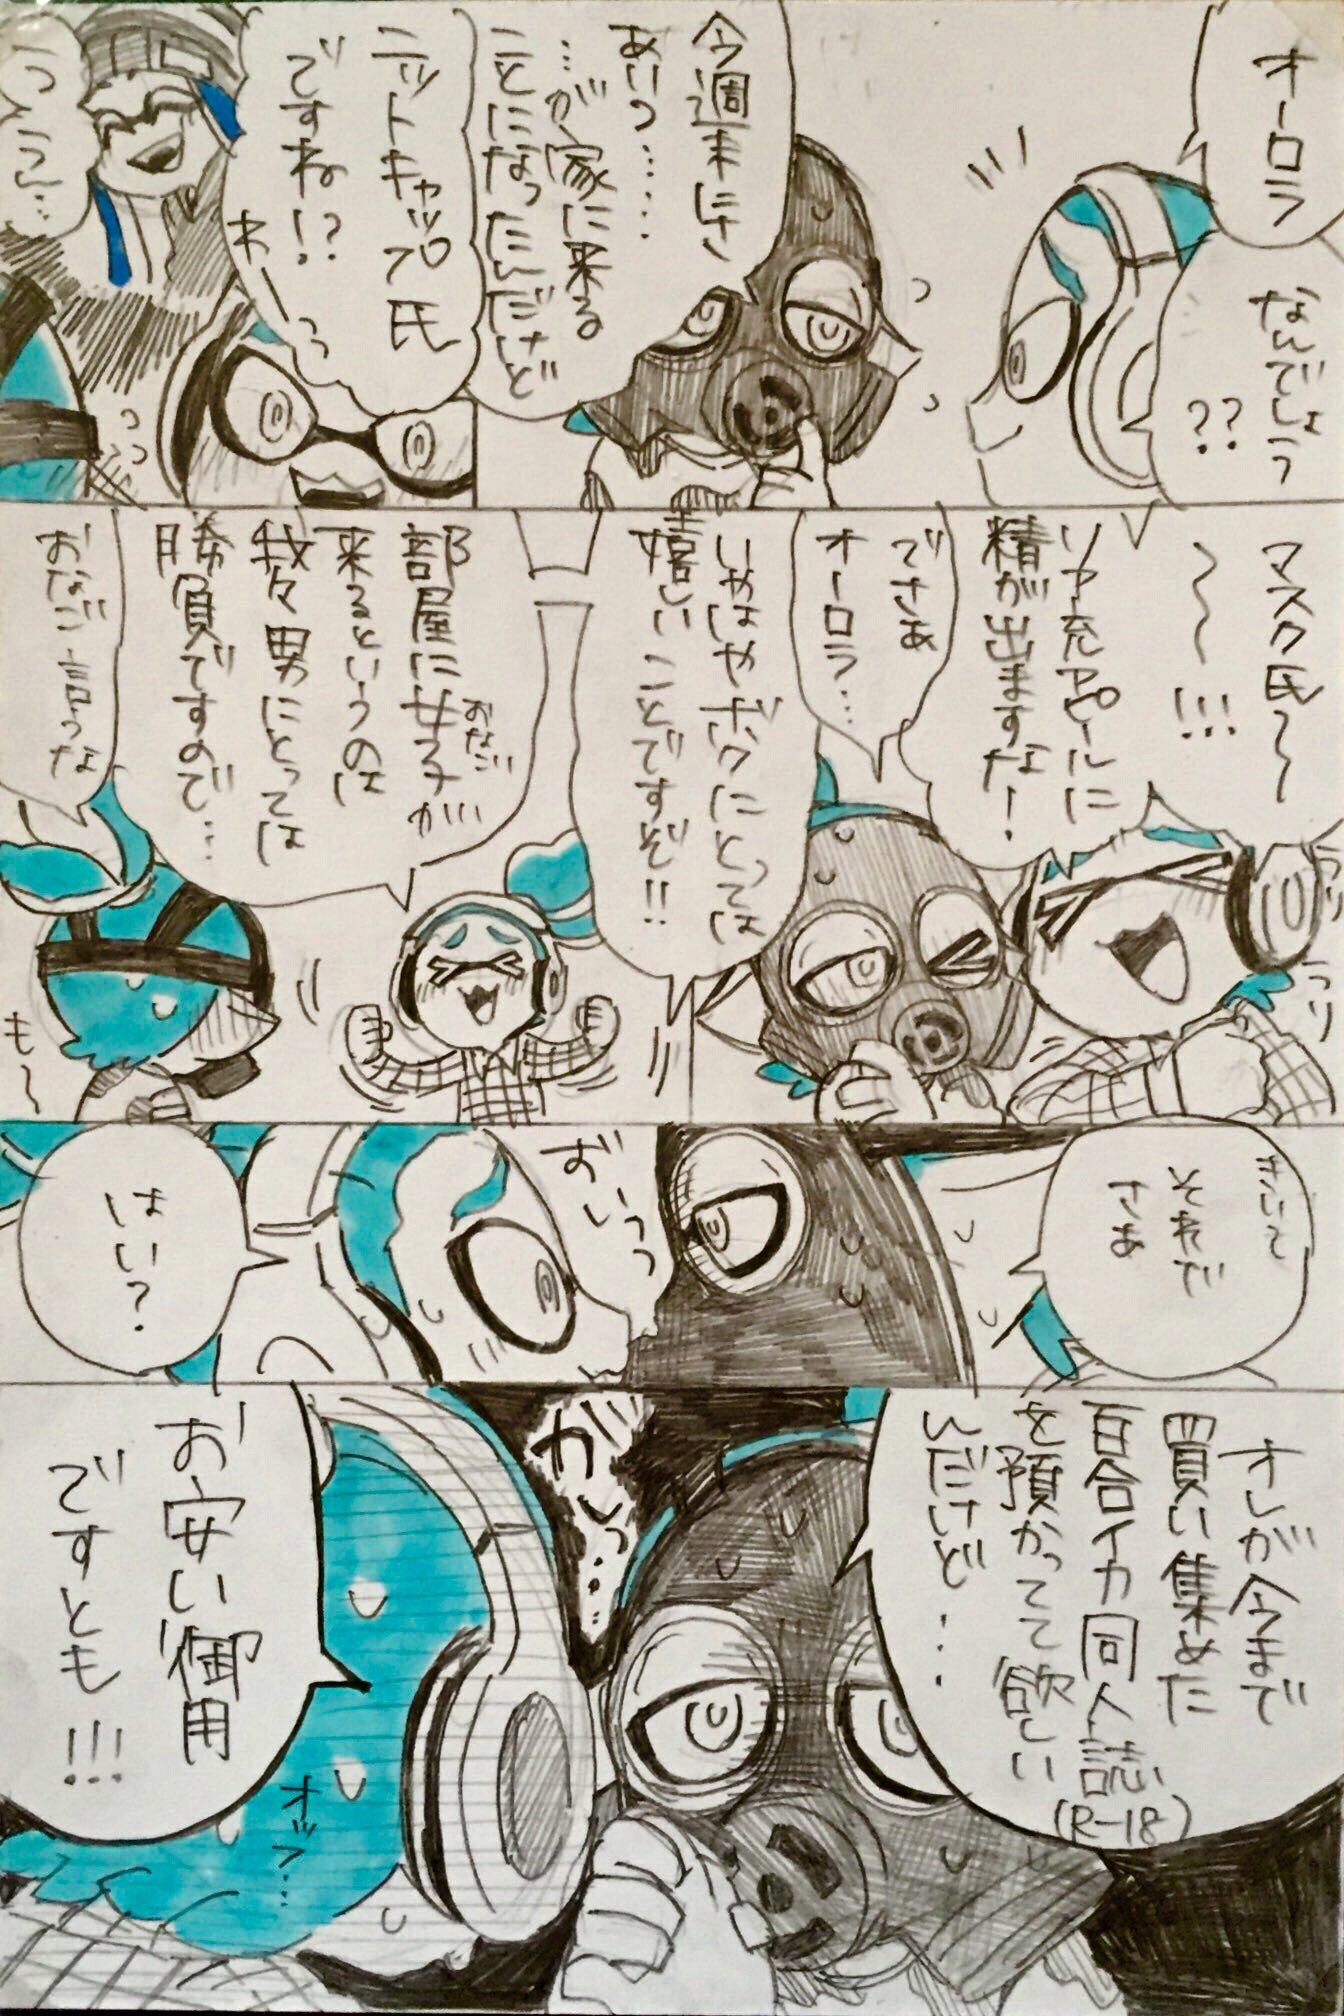 オーロラ
なんでしょう
??
今週末にさ
あいつ……
…が家に来る
ことになったんだけど
ニットキャップ氏
ですね!?
わーっ
うっ
うん…
マスク氏〜
〜〜!!!
リア充アピールに
精が出ますな!
でさぁ
オーロラ…
いやはやボクにとっては
嬉しいことですぞ!!
部屋に女子が
おなご
来るというのは
我々男にとっては
勝負ですので…
おなご言うな
も〜
きいて
それで
さぁ
おいっっ
はい?
オレが今まで
買い集めた
百合イカ同人誌
(R-18)
を預かってて欲しい
んだけど…
ガしっ…
お安い御用
ですとも!!!
オッフ…